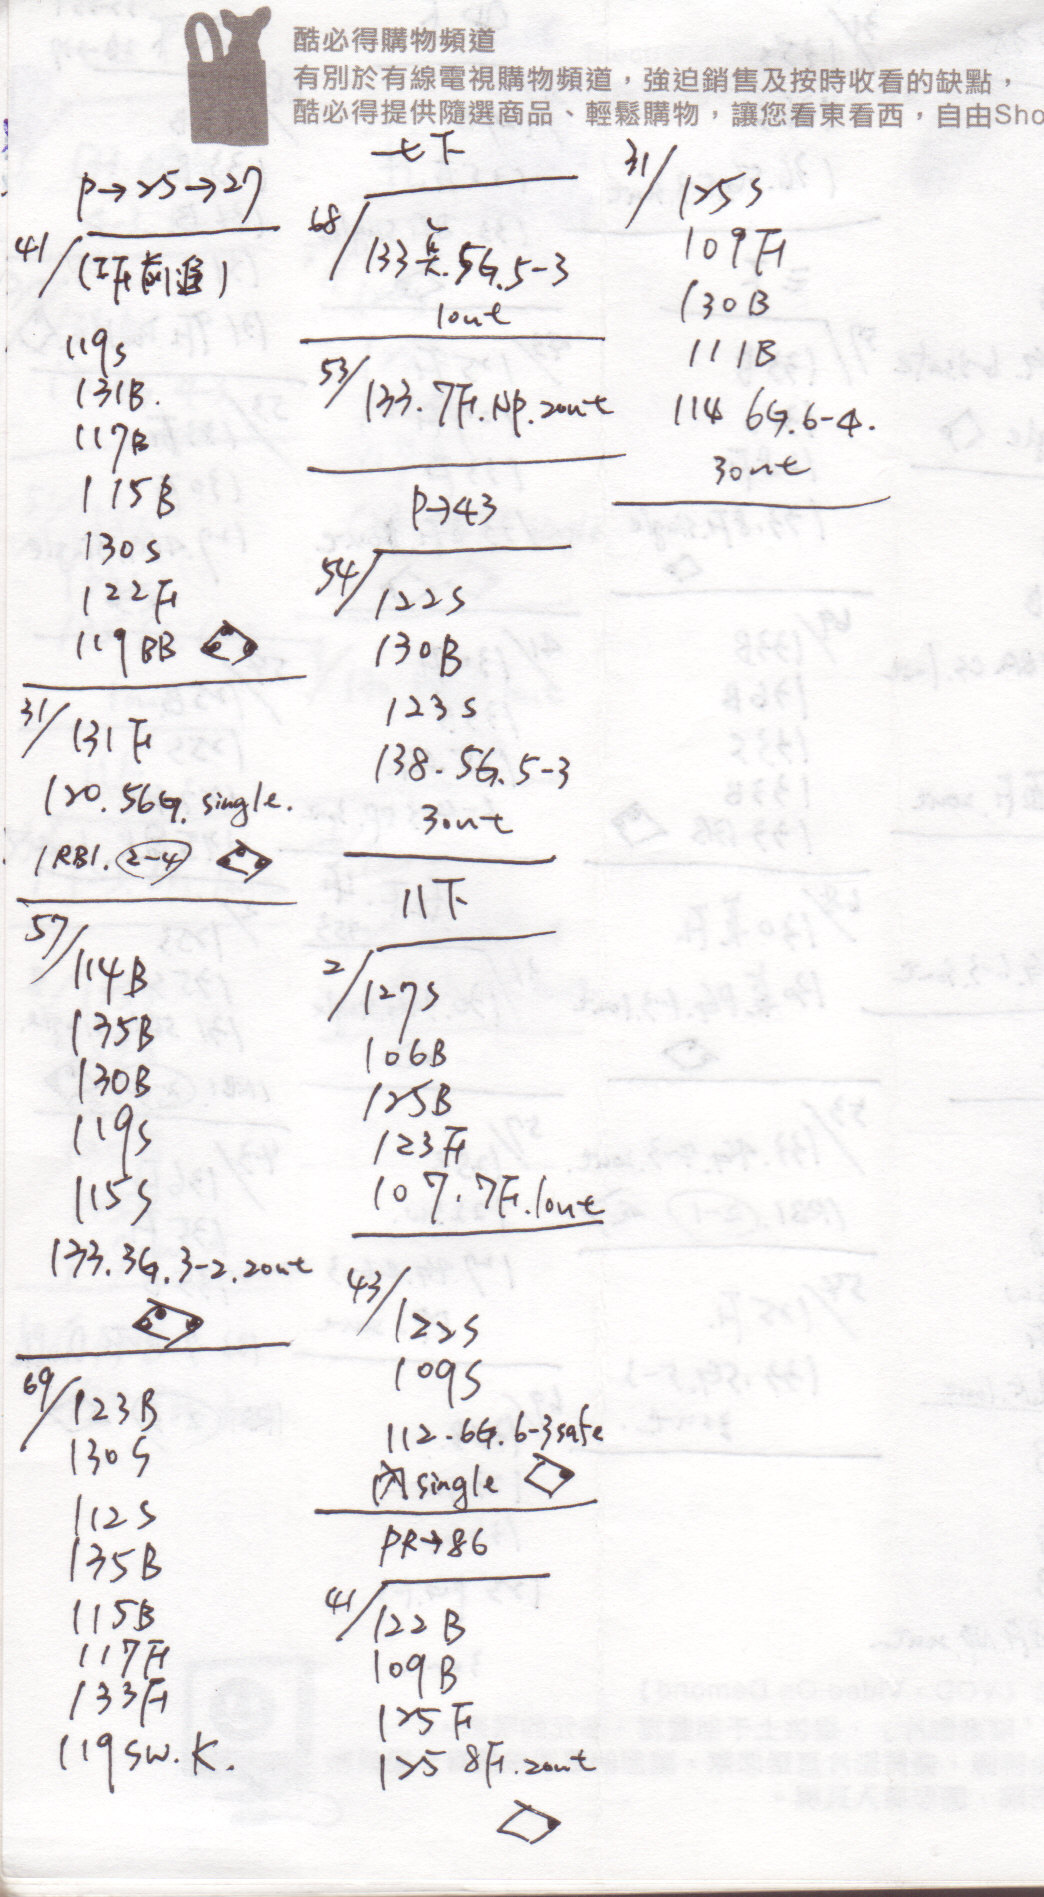 酷必得購物頻道
有別於有線電視購物頻道，強迫銷售及按時收看的缺點，
酷必得提供隨選商品、輕鬆購物，讓您看東看西，自由Sho
P→25→27
41/
119S
131B.
117B
115B
130S
122F
119BB
31/131F
120.56G.single.
1RBI. 2-4
57/114B
135B
130B
119S
115S
133.3G.3-2.2out
69/123B
130S
112S
135B
115B
117F
133F
119SW.K.
七下
68/133.5G.5-3
1out
53/133.7F.NP.2out
P→43
54/122S
130B
123S
138.5G.5-3
3out
八下
2/127S
106B
125B
123F
107.7F.1out
43/122S
109S
112.6G.6-3safe
內single
PR→86
41/122B
109B
125F
125 8F.2out
31/125S
109F
130B
111B
114 6G.6-4.
3out